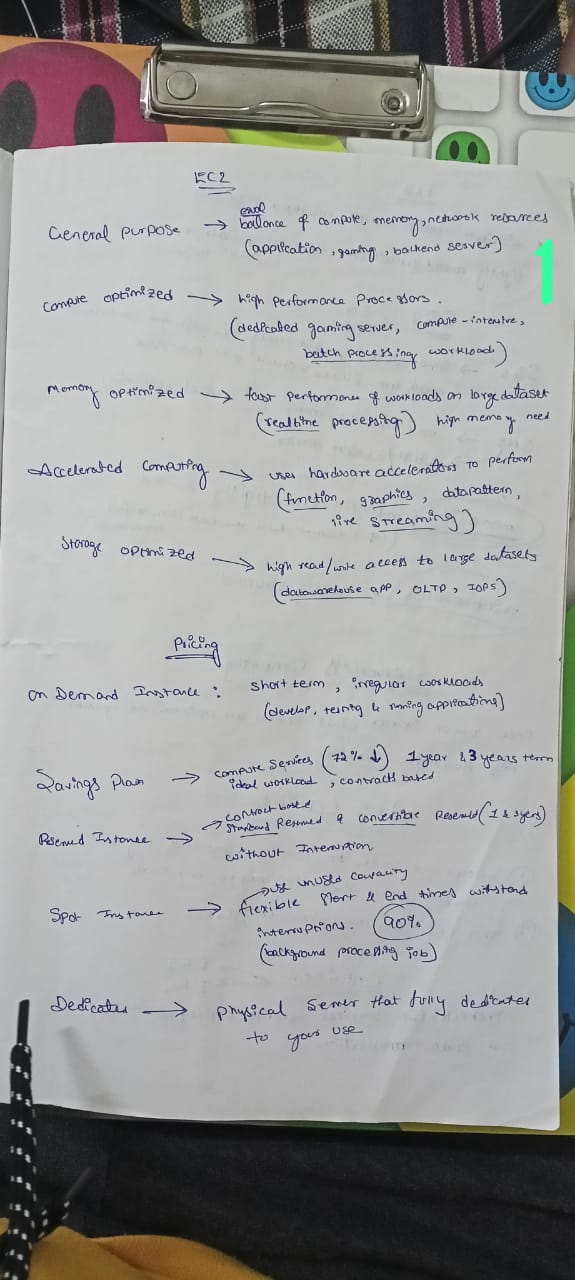 EC2
General purpose → equal balance of compute, memory, network resources
(application, gaming, backend server)
1
Compute optimized → high performance Processors.
(dedicated gaming server, compute-intensive,
batch processing workload)
Memory optimized → fast performance of workloads on large dataset
(realtime processing) high memory need
Accelerated Computing → uses hardware accelerators to perform
(function, graphics, datapattern,
live streaming)
Storage optimized → high read/write access to large datasets
(datawarehouse app, OLTP, IOPS)
Pricing
On Demand Instance : short term, irregular workloads
(develop, testing & running applications)
Savings Plan → compute services (72% ↓) 1 year & 3 years term
ideal workload, contracts based
→ contract based
Reserved Instance → Standard Reserved & convertible Reserved (1 & 3yers)
without Interruption
→ use unused capacity
Spot Instance → flexible start & end times withstand
interruptions. 90%
(background processing job)
Dedicated → physical server that fully dedicates
to your use